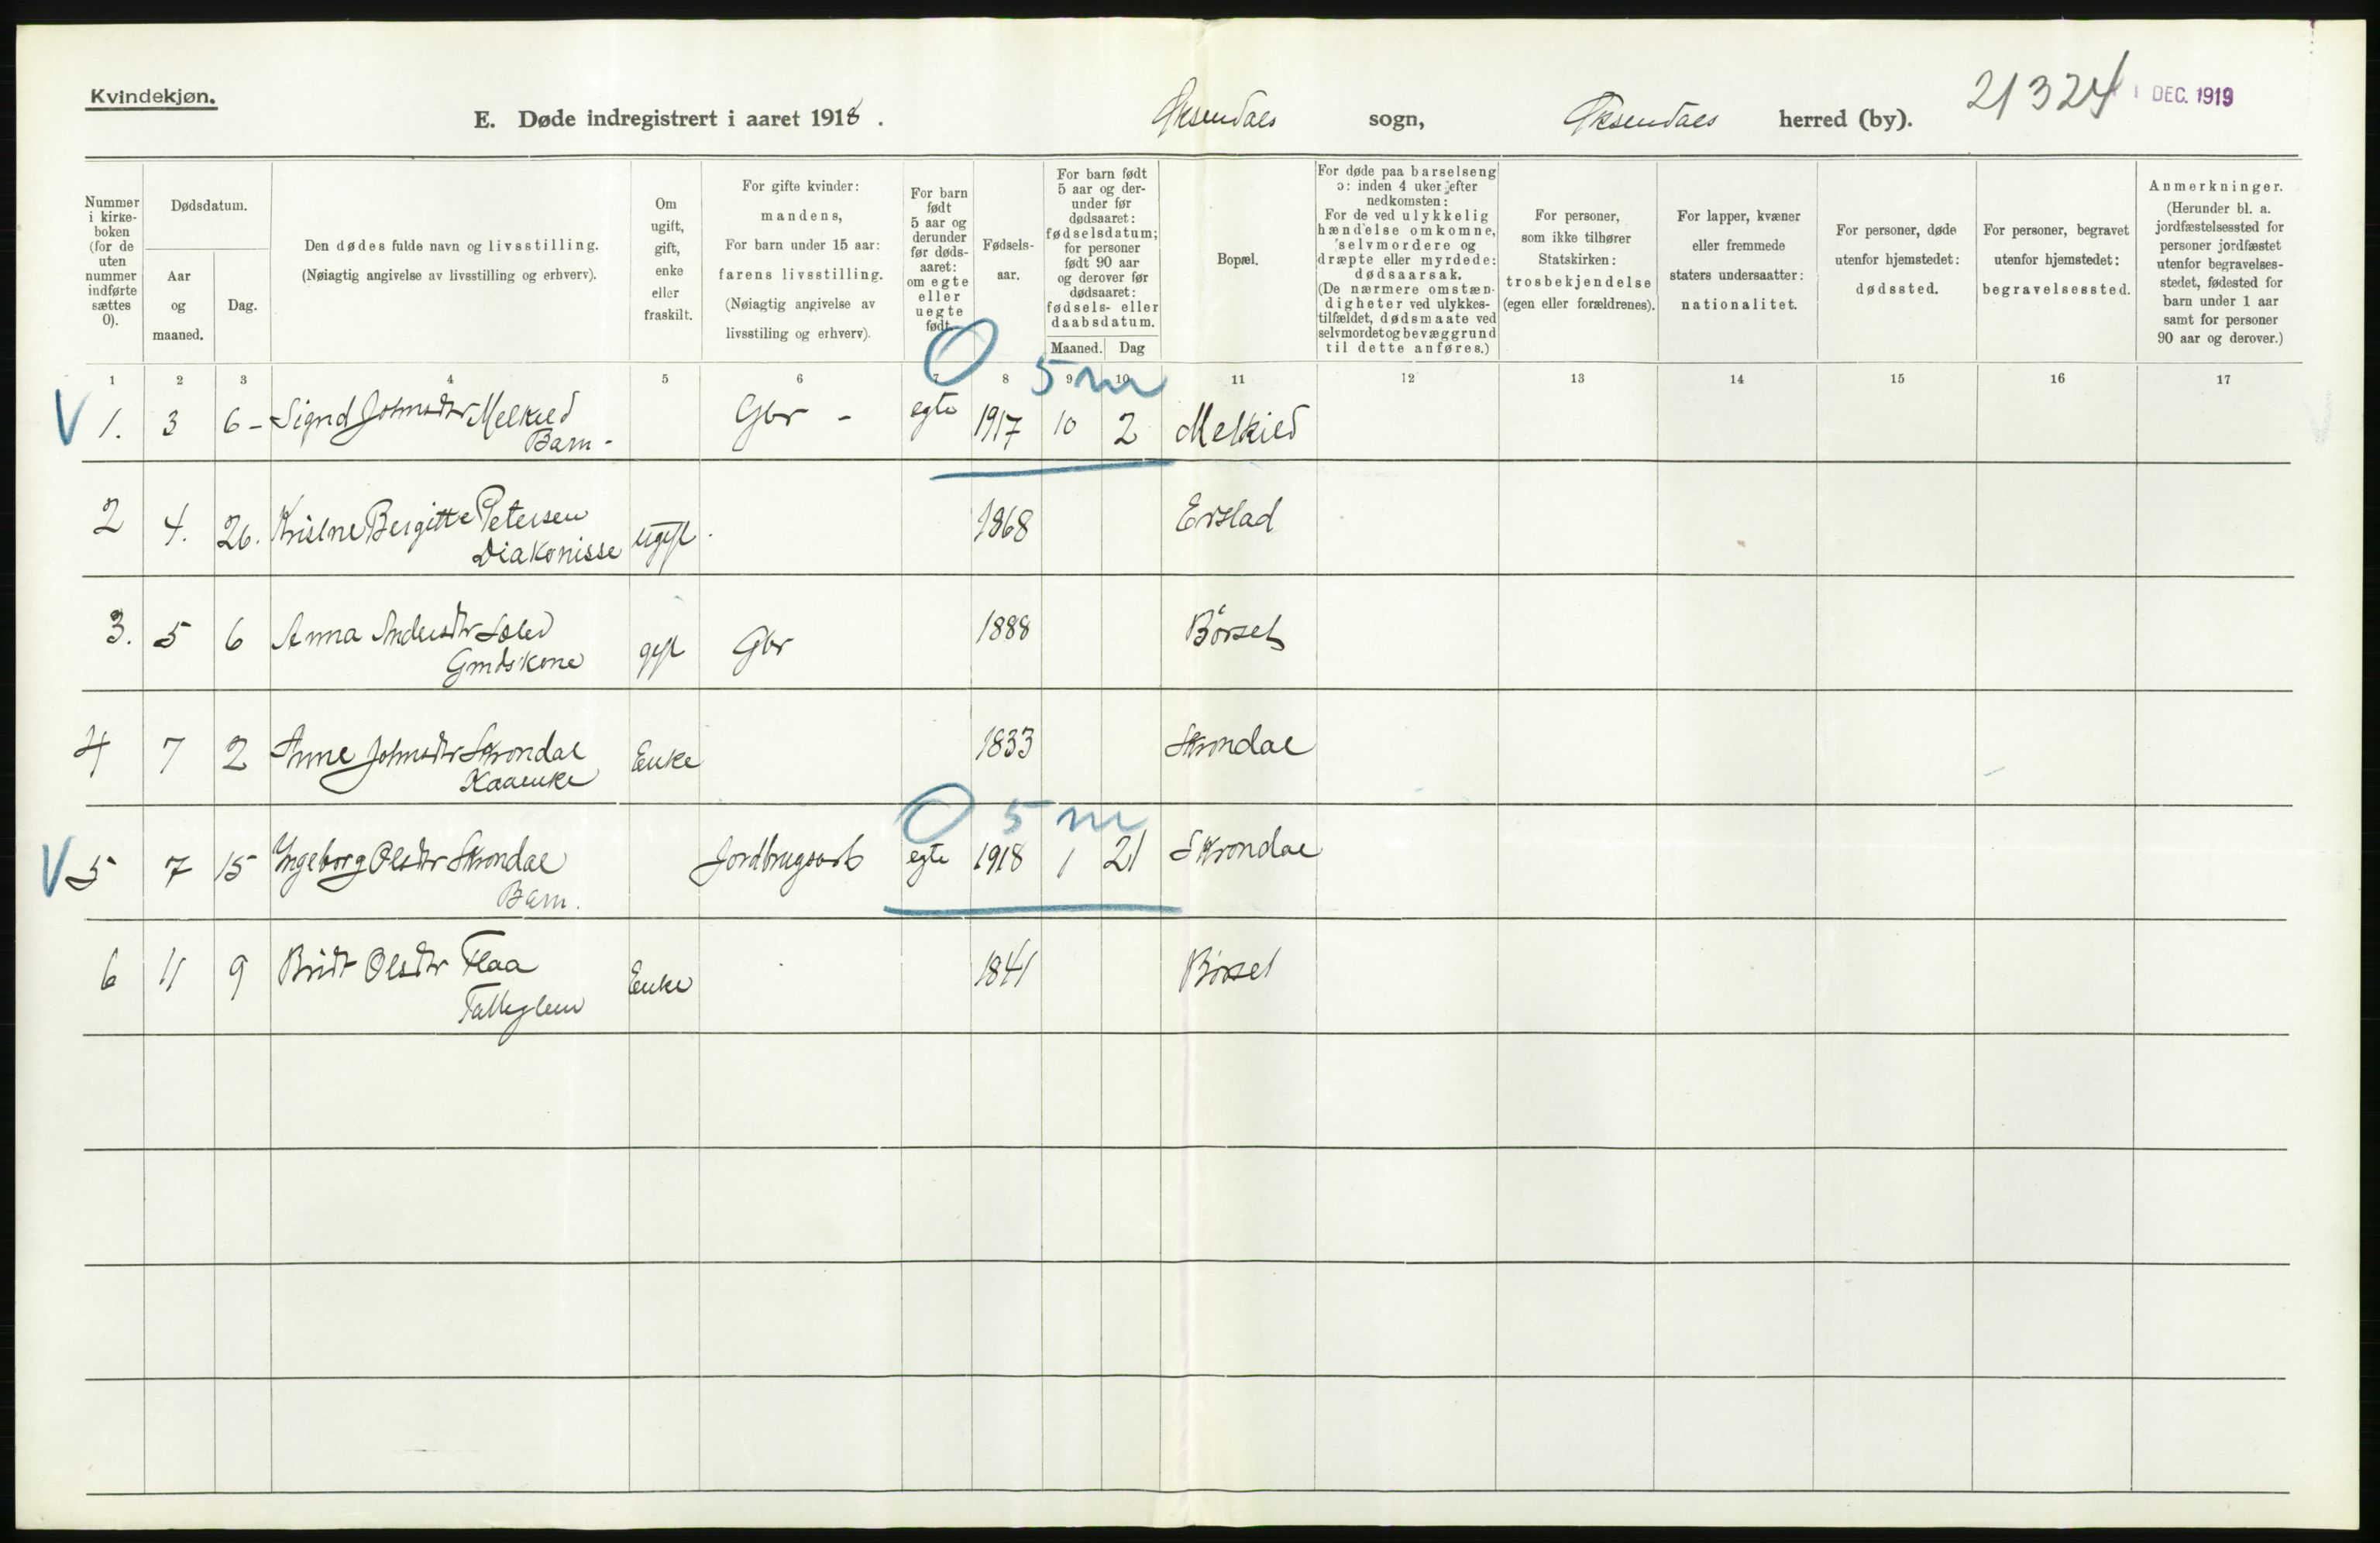 Kvindekjøn.
E. Døde indregistrert i aaret 1918.
Øksendals sogn, Øksendals herred (by).
21324
1 DEC. 1919
Nummer i kirkeboken (for de uten nummer indførte sættes 0).
Dødsdatum.
Aar og maaned.
Dag.
Den dødes fulde navn og livsstilling.
(Nøiagtig angivelse av livsstilling og erhverv).
Om ugift, gift, enke eller fraskilt.
For gifte kvinder: mandens,
For barn under 15 aar: farens livsstilling.
(Nøiagtig angivelse av livsstiling og erhverv).
For barn født 5 aar og derunder før dødsaaret: om egte eller uegte født.
Fødselsaar.
For barn født 5 aar og derunder før dødsaaret: fødselsdatum; for personer født 90 aar og derover før dødsaaret: fødsels- eller daabsdatum.
Maaned. Dag
Bopæl.
For døde paa barselseng ɔ: inden 4 uker efter nedkomsten:
For de ved ulykkelig hændelse omkomne, selvmordere og dræpte eller myrdede: dødsaarsak.
(De nærmere omstændigheter ved ulykkestilfældet, dødsmaate ved selvmordet og bevæggrund til dette anføres.)
For personer, som ikke tilhører Statskirken: trosbekjendelse (egen eller forældrenes).
For lapper, kvæner eller fremmede staters undersaatter: nationalitet.
For personer, døde utenfor hjemstedet: dødssted.
For personer, begravet utenfor hjemstedet: begravelsessted.
Anmerkninger.
(Herunder bl. a. jordfæstelsessted for personer jordfæstet utenfor begravelsesstedet, fødested for barn under 1 aar samt for personer 90 aar og derover.)
1 2 3 4 5 6 7 8 9 10 11 12 13 14 15 16 17
0 5 m
V 1. 3 6 - Sigrid Johnsdtr Melkild Gbr - egte 1917 10 2 Melkild
Barn -
2 4. 26. Kristne Bergitte Petersen ugift 1868
Diakonisse
3. 5 6 Anna Andersdtr gift Gbr 1888 Børset
Grndskone
4 7 2 Anne Johnsdtr Skrondal Enke 1833 Skrondal
Kaaenke
0 5 m
V 5 7 15 Ingeborg Olsdtr Skrondal Jordbrugsarb egte 1918 1 21 Skrondal
Barn.
6 11 9 Bridt Olsdtr Flaa Enke 1841 Børset